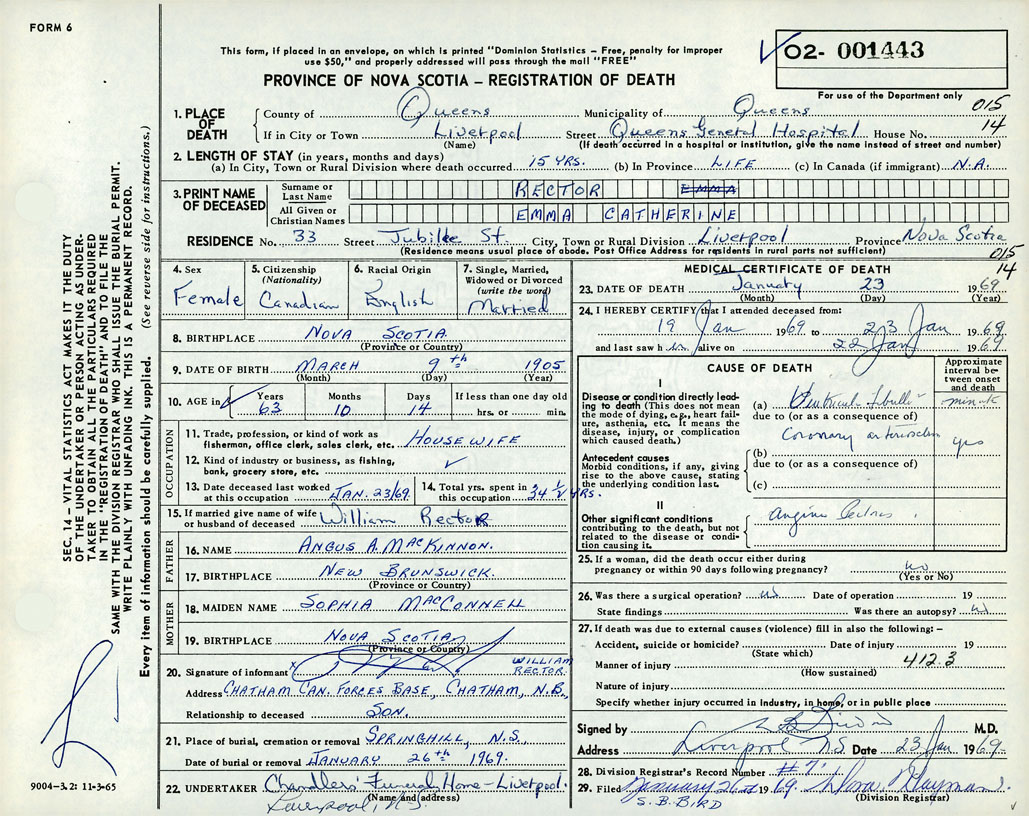 FORM 6
This form, if placed in an envelope, on which is printed "Dominion Statistics – Free, penalty for improper
use $50," and properly addressed will pass through the mail "FREE"
O2- 001443
For use of the Department only
PROVINCE OF NOVA SCOTIA – REGISTRATION OF DEATH
015
14
1. PLACE OF DEATH
County of Queens Municipality of Queens
If in City or Town Liverpool Street Queens General Hospital House No.
(Name) (If death occurred in a hospital or institution, give the name instead of street and number)
2. LENGTH OF STAY (in years, months and days)
(a) In City, Town or Rural Division where death occurred 15 YRS. (b) In Province LIFE (c) In Canada (if immigrant) N.A.
3. PRINT NAME OF DECEASED
Surname or Last Name RECTOR EMMA
All Given or Christian Names EMMA CATHERINE
RESIDENCE No. 33 Street Jubilee St. City, Town or Rural Division Liverpool Province Nova Scotia
(Residence means usual place of abode. Post Office Address for residents in rural parts not sufficient)
015
14
4. Sex Female
5. Citizenship (Nationality) Canadian
6. Racial Origin English
7. Single, Married, Widowed or Divorced (write the word) Married
8. BIRTHPLACE NOVA SCOTIA
(Province or Country)
9. DATE OF BIRTH MARCH 9th 1905
(Month) (Day) (Year)
10. AGE in Years 63 Months 10 Days 14 If less than one day old hrs. or min.
OCCUPATION
11. Trade, profession, or kind of work as
fisherman, office clerk, sales clerk, etc. HOUSEWIFE
12. Kind of industry or business, as fishing,
bank, grocery store, etc.
13. Date deceased last worked at this occupation JAN. 23/69
14. Total yrs. spent in this occupation 34 1/2 YRS.
15. If married give name of wife
or husband of deceased William Rector
FATHER
16. NAME ANGUS A. MacKINNON.
17. BIRTHPLACE NEW BRUNSWICK.
(Province or Country)
MOTHER
18. MAIDEN NAME SOPHIA MacCONNELL
19. BIRTHPLACE NOVA SCOTIA
(Province or Country)
20. Signature of informant x WILLIAM RECTOR.
Address CHATHAM CAN. FORCES BASE, CHATHAM, N.B.
Relationship to deceased SON.
21. Place of burial, cremation or removal SPRINGHILL, N.S.
Date of burial or removal JANUARY 26th 1969.
22. UNDERTAKER Chandlers' Funeral Home - Liverpool.
(Name and address)
Liverpool, N.S.
MEDICAL CERTIFICATE OF DEATH
23. DATE OF DEATH January 23 1969
(Month) (Day) (Year)
24. I HEREBY CERTIFY that I attended deceased from:
19 Jan 1969 to 23 Jan 1969
and last saw h alive on 22 Jan 1969
CAUSE OF DEATH
Approximate interval between onset and death
I
Disease or condition directly leading to death (This does not mean the mode of dying, e.g., heart failure, asthenia, etc. It means the disease, injury, or complication which caused death.)
(a)
due to (or as a consequence of)
Coronary
Antecedent causes
Morbid conditions, if any, giving rise to the above condition, stating the underlying condition last.
(b)
due to (or as a consequence of)
(c)
II
Other significant conditions contributing to the death, but not related to the disease or condition causing it.
Angina
25. If a woman, did the death occur either during
pregnancy or within 90 days following pregnancy? no
(Yes or No)
26. Was there a surgical operation? Date of operation 19
State findings Was there an autopsy?
27. If death was due to external causes (violence) fill in also the following: –
Accident, suicide or homicide? Date of injury 19
(State which)
Manner of injury 412.3
(How sustained)
Nature of injury
Specify whether injury occurred in industry, in home, or in public place
Signed by M.D.
Address Liverpool N.S. Date 23 Jan 1969.
28. Division Registrar's Record Number #7
29. Filed January 26 1969
(Division Registrar)
S. B. BIRD
SEC. 14 – VITAL STATISTICS ACT MAKES IT THE DUTY
OF THE UNDERTAKER OR PERSON ACTING AS UNDER-
TAKER TO OBTAIN ALL THE PARTICULARS REQUIRED
IN THE "REGISTRATION OF DEATH" AND TO FILE THE
SAME WITH THE DIVISION REGISTRAR WHO SHALL ISSUE THE BURIAL PERMIT.
WRITE PLAINLY WITH UNFADING INK. THIS IS A PERMANENT RECORD.
Every item of information should be carefully supplied. (See reverse side for instructions.)
9004-3.2: 11-3-65